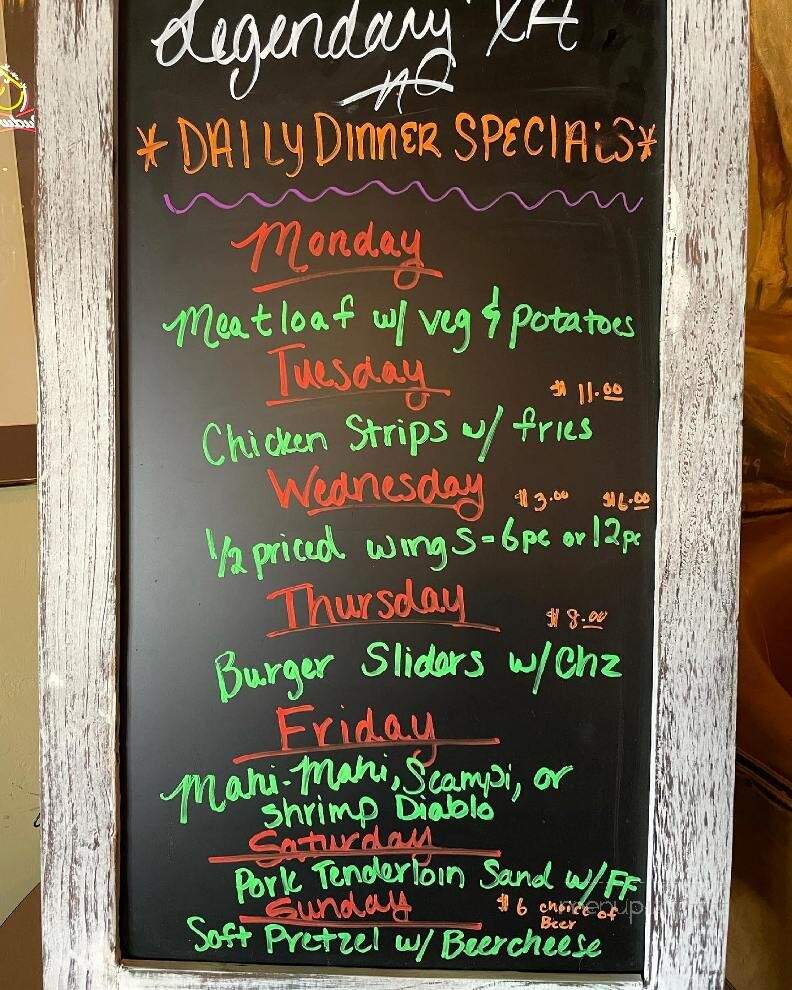 Legendary XA
HQ
* DAILY DINNER SPECIALS *
Monday
Meatloaf w/ veg & potatoes
Tuesday
$11.00
Chicken Strips w/ fries
Wednesday
$3.00 $6.00
1/2 priced wings - 6pc or 12pc
Thursday
$8.00
Burger Sliders w/ Chz
Friday
Mahi-Mahi, Scampi, or
shrimp Diablo
Saturday
Pork Tenderloin Sand w/ FF
Sunday
$6 choice of
Beer
Soft Pretzel w/ Beercheese